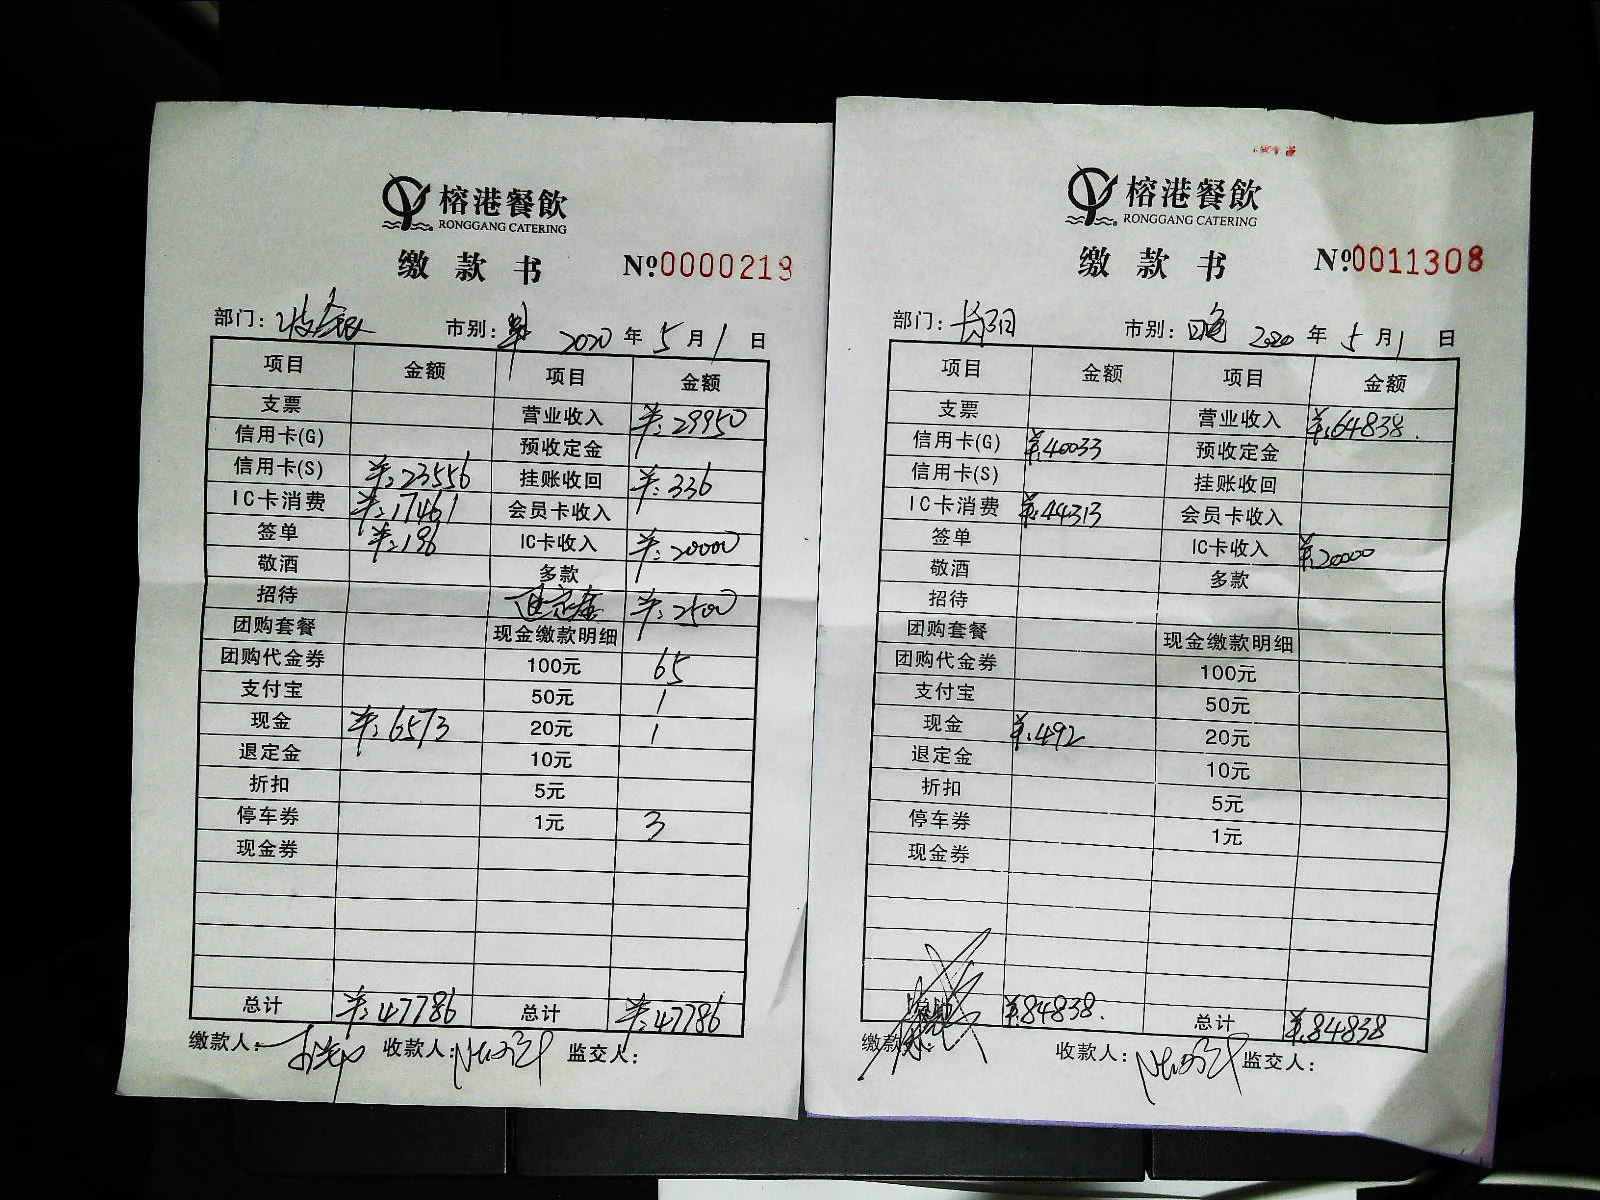 榕港餐飲
RONGGANG CATERING
缴款书 №0000219
部门： 市别： 2020年5月1日
项目 金额 项目 金额
支票 营业收入 ¥:29950
信用卡(G) 预收定金
信用卡(S) ¥:23556 挂账收回 ¥:336
IC卡消费 ¥:17461 会员卡收入
签单 ¥:196 IC卡收入 ¥:20000
敬酒 多款
招待 退定金 ¥:2500
团购套餐 现金缴款明细
团购代金券 100元 65
支付宝 50元 1
现金 ¥:6573 20元 1
退定金 10元
折扣 5元
停车券 1元 3
现金券
总计 ¥:47786 总计 ¥:47786
缴款人： 收款人： 监交人：
榕港餐飲
RONGGANG CATERING
缴款书 №0011308
部门： 市别：晚 2020年5月1日
项目 金额 项目 金额
支票 营业收入 ¥:64838.
信用卡(G) ¥:40033 预收定金
信用卡(S) 挂账收回
IC卡消费 ¥:44313 会员卡收入
签单 IC卡收入 ¥:20000
敬酒 多款
招待
团购套餐 现金缴款明细
团购代金券 100元
支付宝 50元
现金 ¥:492 20元
退定金 10元
折扣 5元
停车券 1元
现金券
¥:84838. 总计 ¥:84838
缴款人： 收款人： 监交人：